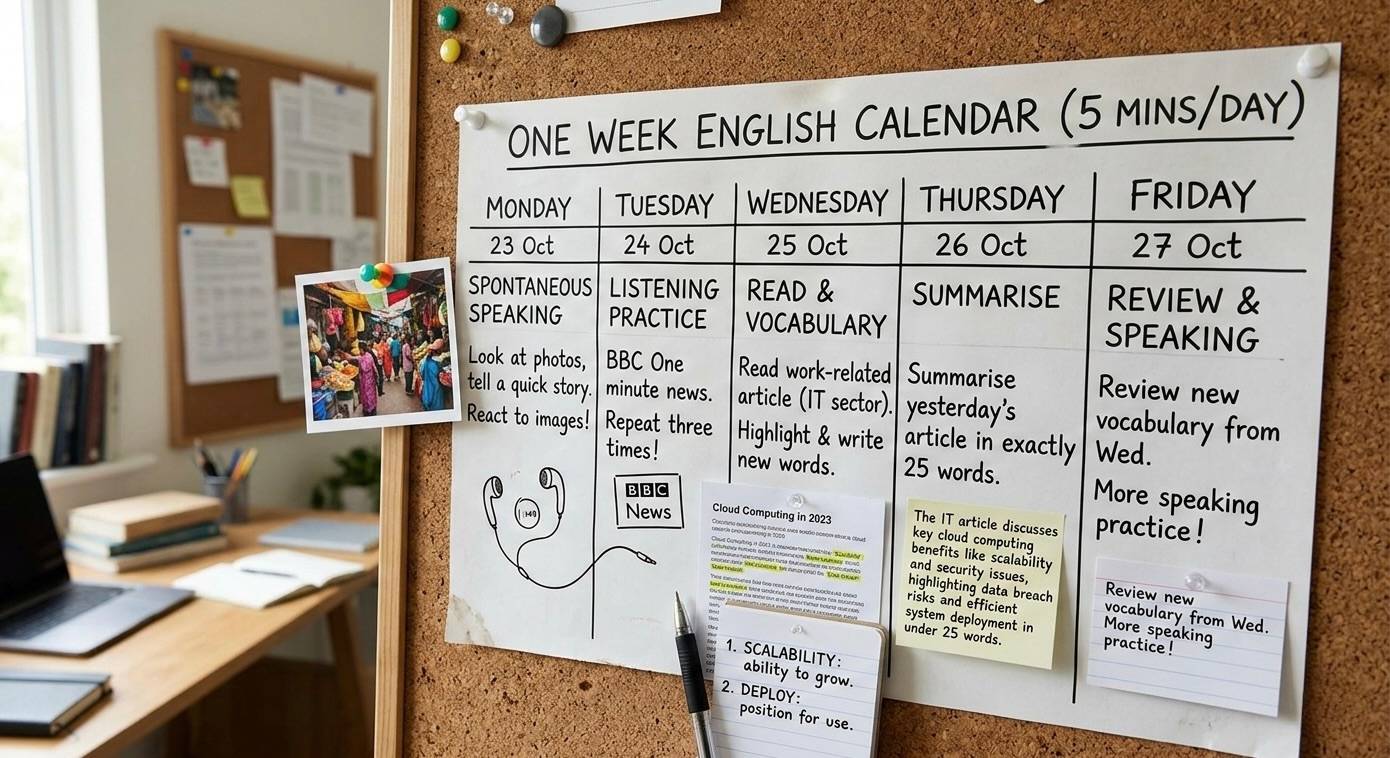 ONE WEEK ENGLISH CALENDAR (5 MINS/DAY)
MONDAY
23 Oct
SPONTANEOUS
SPEAKING
Look at photos,
tell a quick story.
React to images!
TUESDAY
24 Oct
LISTENING
PRACTICE
BBC One
minute news.
Repeat three
times!
BBC
News
WEDNESDAY
25 Oct
READ &
VOCABULARY
Read work-related
article (IT sector).
Highlight & write
new words.
Cloud Computing in 2023
1. SCALABILITY:
ability to grow.
2. DEPLOY:
position for use.
THURSDAY
26 Oct
SUMMARISE
Summarise
yesterday's
article in exactly
25 words.
The IT article discusses
key cloud computing
benefits like scalability
and security issues,
highlighting data breach
risks and efficient
system deployment in
under 25 words.
FRIDAY
27 Oct
REVIEW &
SPEAKING
Review new
vocabulary from
Wed.
More speaking
practice!
Review new
vocabulary from Wed.
More speaking
practice!